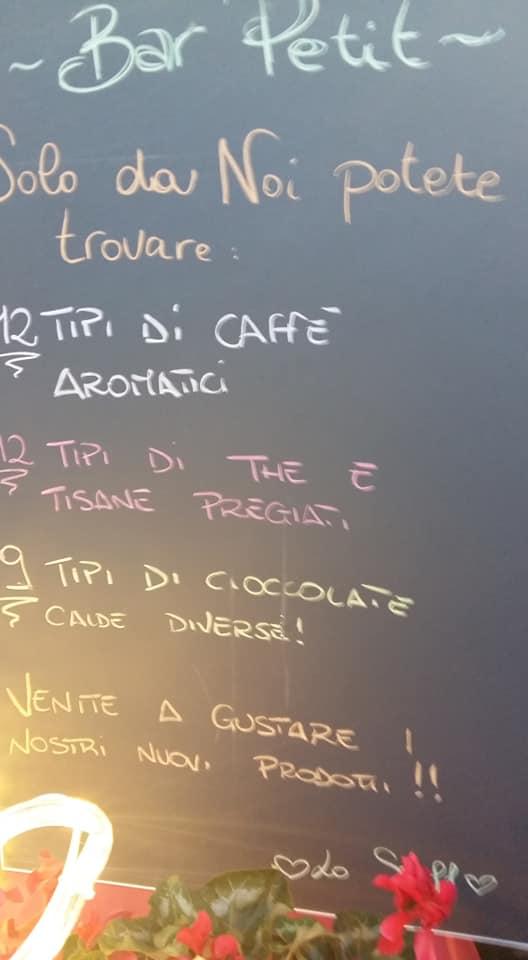 ~ Bar Petit ~
Solo da Noi potete
trovare:
12 TIPI Di CAFFÈ
AROMATICI
12 TIPI Di THE E
TISANE PREGIATI
9 TIPI DI CIOCCOLATE
CALDE DIVERSE!
VENITE A GUSTARE I
NOSTRI NUOVI PRODOTTI !!
Lo